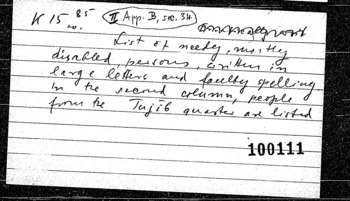 K 15 no. 85 II App. B, sec. 34
List of needy, mostly
disabled, persons, written in
large letters and faulty spelling
In the second column, people
from the Tujib quarter are listed
100111